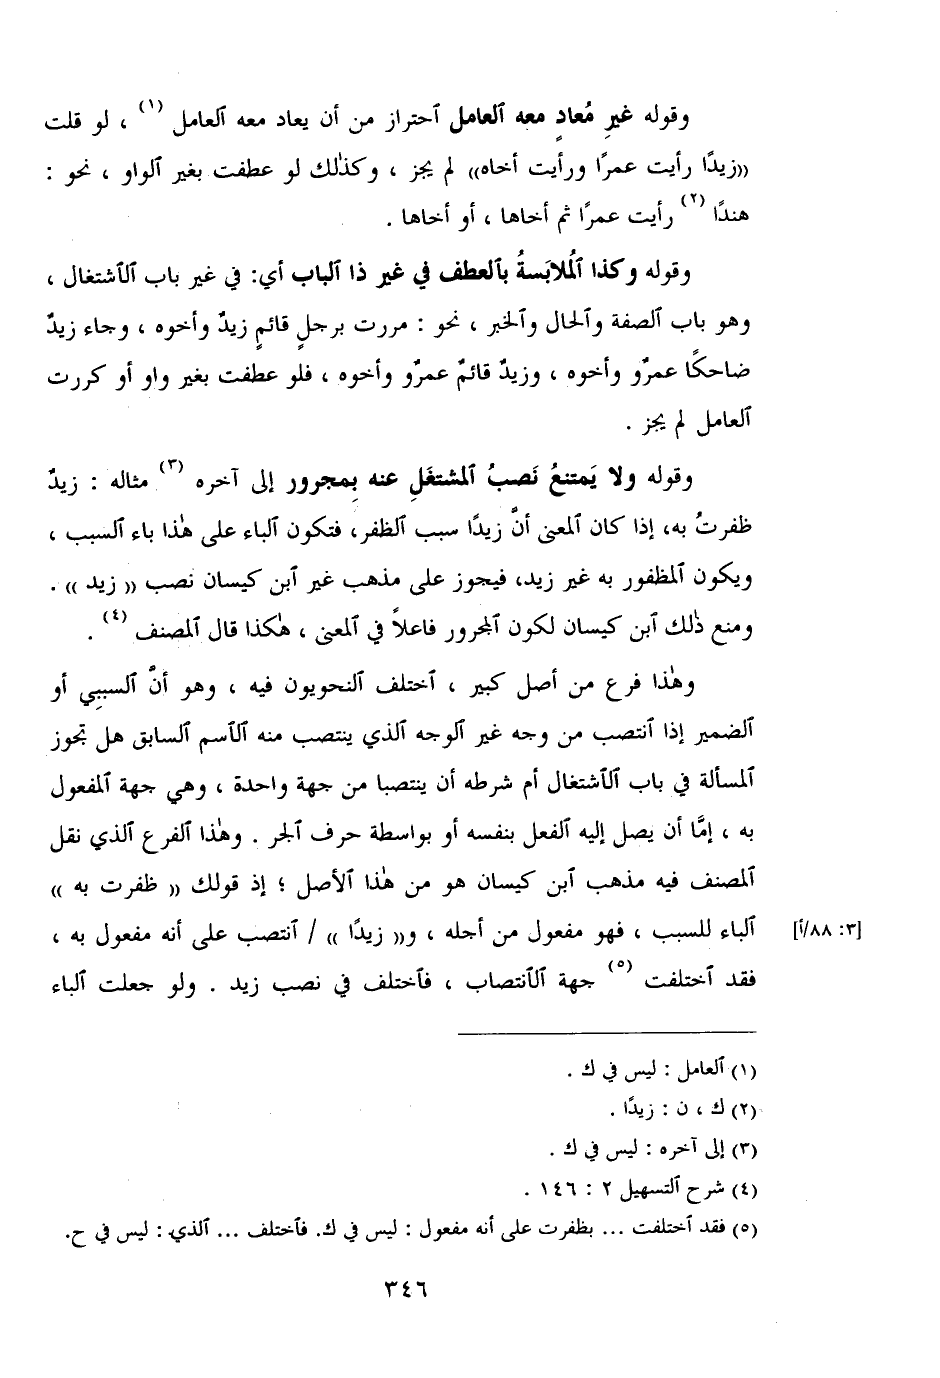 وقوله غيرِ مُعادٍ معه ٱلعامل ٱحتراز من أن يعاد معه ٱلعامل (١) ، لو قلت
«زيدًا رأيت عمرًا ورأيت أخاه» لم يجز ، وكذٰلك لو عطفت بغير ٱلواو ، نحو :
هندًا (٢) رأيت عمرًا ثم أخاها ، أو أخاها .
وقوله وكذا ٱلمُلابَسةُ بٱلعطف في غير ذا ٱلباب أي: في غير باب ٱلٱشتغال ،
وهو باب ٱلصفة وٱلحال وٱلخبر ، نحو : مررت برجلٍ قائمٍ زيدٌ وأخوه ، وجاء زيدٌ
ضاحكًا عمرٌو وأخوه ، وزيدٌ قائمٌ عمرٌو وأخوه ، فلو عطفت بغير واو أو كررت
ٱلعامل لم يجز .
وقوله ولا يَمتنعُ نَصبُ ٱلمشتغَلِ عنه بِمجرور إلى آخره (٣) مثاله : زيدٌ
ظفرتُ به، إذا كان ٱلمعنى أنَّ زيدًا سبب ٱلظفر، فتكون ٱلباء على هٰذا باء ٱلسبب ،
ويكون ٱلمظفور به غير زيد، فيجوز على مذهب غير ٱبن كيسان نصب « زيد » .
ومنع ذٰلك ٱبن كيسان لكون ٱلمجرور فاعلاً في ٱلمعنى ، هٰكذا قال ٱلمصنف (٤) .
وهٰذا فرع من أصل كبير ، ٱختلف ٱلنحويون فيه ، وهو أنَّ ٱلسببِي أو
ٱلضمير إذا ٱنتصب من وجه غير ٱلوجه ٱلذي ينتصب منه ٱلٱسم ٱلسابق هل تجوز
ٱلمسألة في باب ٱلٱشتغال أم شرطه أن ينتصبا من جهة واحدة ، وهي جهة ٱلمفعول
به ، إمَّا أن يصل إليه ٱلفعل بنفسه أو بواسطة حرف ٱلجر . وهٰذا ٱلفرع ٱلذي نقل
ٱلمصنف فيه مذهب ٱبن كيسان هو من هٰذا ٱلأصل ؛ إذ قولك « ظفرت به »
ٱلباء للسبب ، فهو مفعول من أجله ، و« زيدًا » / ٱنتصب على أنه مفعول به ، [٣: ٨٨/أ]
فقد ٱختلفت (٥) جهة ٱلٱنتصاب ، فٱختلف في نصب زيد . ولو جعلت ٱلباء
(١) ٱلعامل : ليس في ك .
(٢) ك ، ن : زيدًا .
(٣) إلى آخره : ليس في ك .
(٤) شرح ٱلتسهيل ٢ : ١٤٦ .
(٥) فقد ٱختلفت ... بظفرت على أنه مفعول : ليس في ك. فٱختلف ... ٱلذي : ليس في ح.
٣٤٦